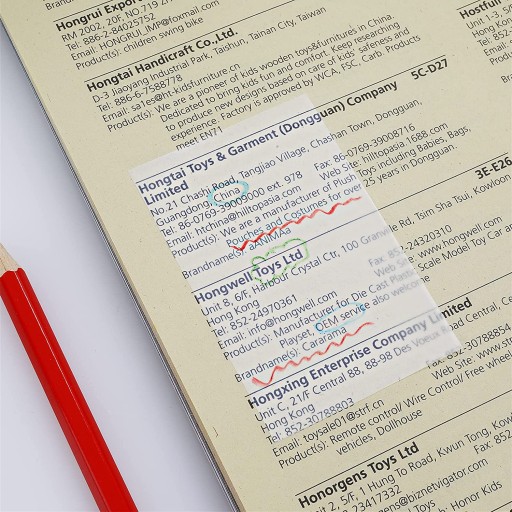 Hongrui Expor
RM 2002, 20F, NO.719 Z
Tel: 886-2-84025752
Email: HONGRUI.IMP@foxmail.com
Product(s): children swing bike
Hongtai Handicraft Co., Ltd.
D-3 Jiaoyang Industrial Park, Taishun, Tainan City, Taiwan
Tel: 886-6-7588778
Email: sales@ht-kidsfurniture.cn
Product(s): We are a pioneer of kids wooden toys&furnitures in China,
Dedicated to bring kids fun and comfort. Keep researching
to produce new designs based on care of kids' safeness and
experience. Factory is approved by WCA, FSC, Carb. Products
meet EN71
5C-D27
Hongtai Toys & Garment (Dongguan) Company
Limited
No.21 Chashi Road, Tangjiao Village, Chashan Town, Dongguan,
Guangdong, China
Tel: 86-0769-39009000 ext. 978 Fax: 86-0769-39008716
Email: htchina@hiltopasia.com Web Site: hiltopasia 1688.com
Product(s): We are a manufacturer of Plush Toys including Babies, Bags,
Pouches and Costumes for over 25 years in Dongguan.
Brandname(s): aANIMAa
3E-E26
Hongwell Toys Ltd
Unit 8, 6/F, Harbour Crystal Ctr, 100 Granville Rd. Tsim Sha Tsui, Kowloon
Hong Kong
Tel: 852-24970361 Fax: 852-24320310
Email: info@hongwell.com Web Site: www.hongwell.com
Product(s): Manufacturer for Die Cast Plastic Scale Model Toy Car a
Playset, OEM service also welcome
Brandname(s): Cararama
Hongxing Enterprise Company Limited
Unit C, 21/F Central 88, 88-98 Des Voeux Road Central, Ce
Hong Kong
Tel: 852-30788803 Fax: 852-3078885
Email: toysale01@strf.cn Web Site: www.str
Product(s): Remote control/ Wire Control/ Free whee
vehicles, Dollhouse
Honorgens Toys Ltd
Unit 2, 5/F, 1 Hung To Road, Kwun Tong, Kow
23417332 Fax: 85
gens@biznetvigator.com
Honor Kids
Hostfull
Unit 1-3,
Hong
Tel: 85
Email
Prod